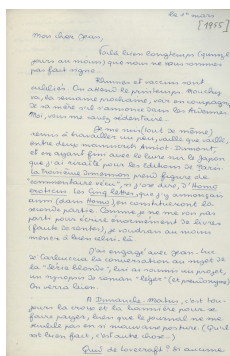 le 1er mars
[1955]
Mon cher Jean,
voilà bien longtemps (quinze
jours au moins) que nous ne nous sommes
pas fait signe.
Rhumes et vaccins sont
oubliés. On attend le printemps.
la semaine prochaine, va en compagnie
de sa mère
Moi, vous me savez sédentaire.
Je me suis (tout de même)
remis à travailler un peu, vaille que vaille
entre deux manuscrits Amiot-Dumont
et en ayant fini avec le livre sur le Japon
que j'ai pour les Editions de Paris.
La troisième dimension prend figure de
"commentaire vécu", si j'ose dire, d'Homo
eroticus. Les cinq lettres que j'y annonçais
aussi (dans Homo) en constitueront la
seconde partie. Comme je ne me vois pas
parti pour écrire énormément de livres
(faute de rentes), je voudrais au moins
mener à bien celui-là.
J'ai engagé avec Jean-
la conversation au sujet de
la "Série blonde", lui ai soumis un projet,
un synopsis de roman "léger" (et pseudonyme)
On verra bien.
A Dimanche-Matin, c'est tou-
jours la croix et la bannière pour se
faire payer, bien que le journal ne me
semble pas en si mauvaise posture. (Qu'il
soit bien fait, c'est autre chose...)
Quid de Lovecraft?